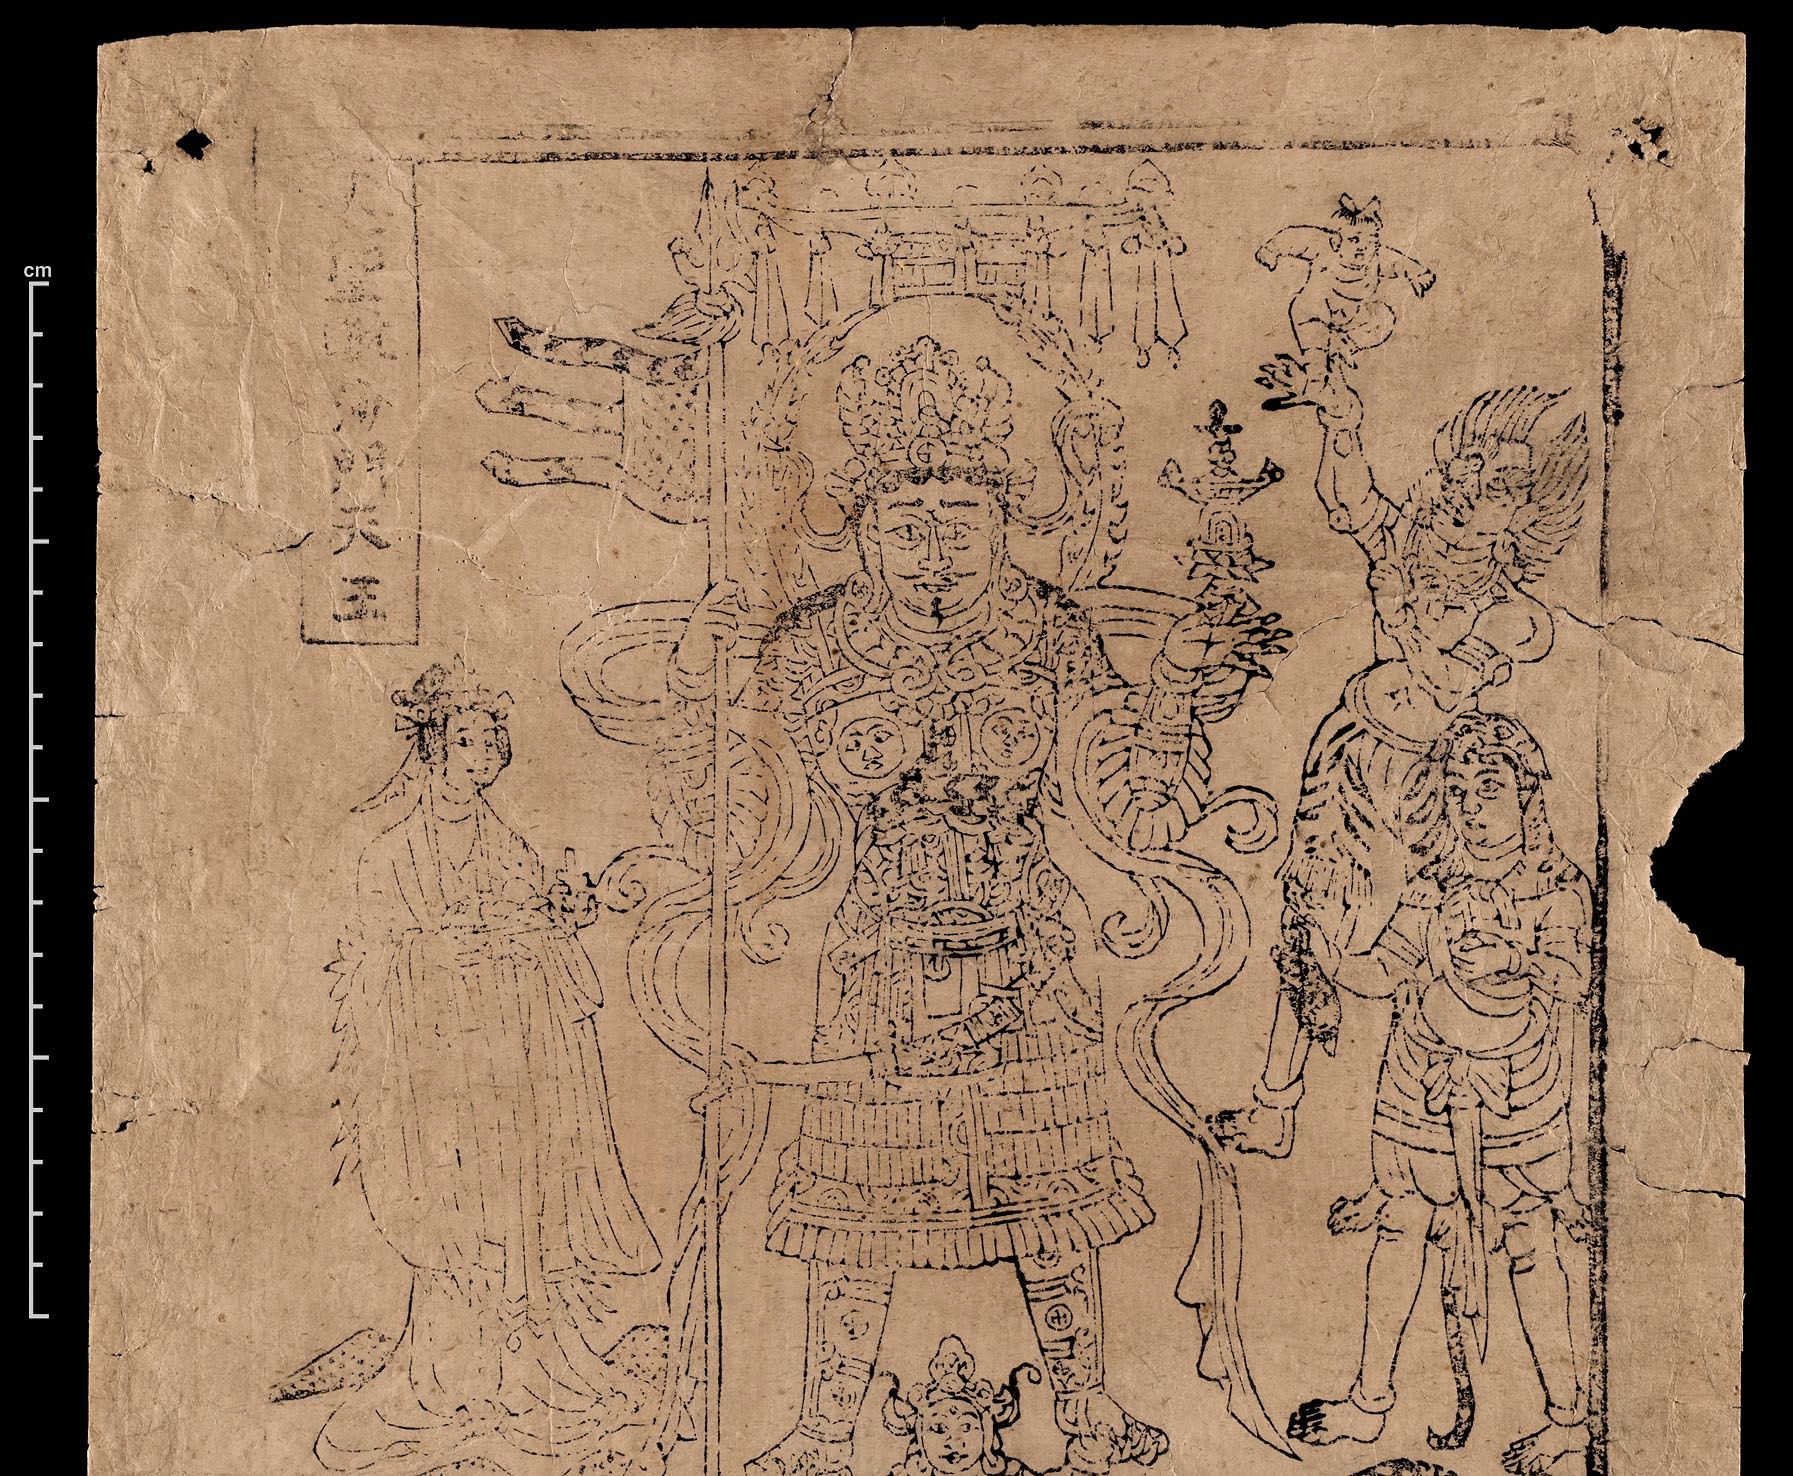 cm
大聖毗沙門天王